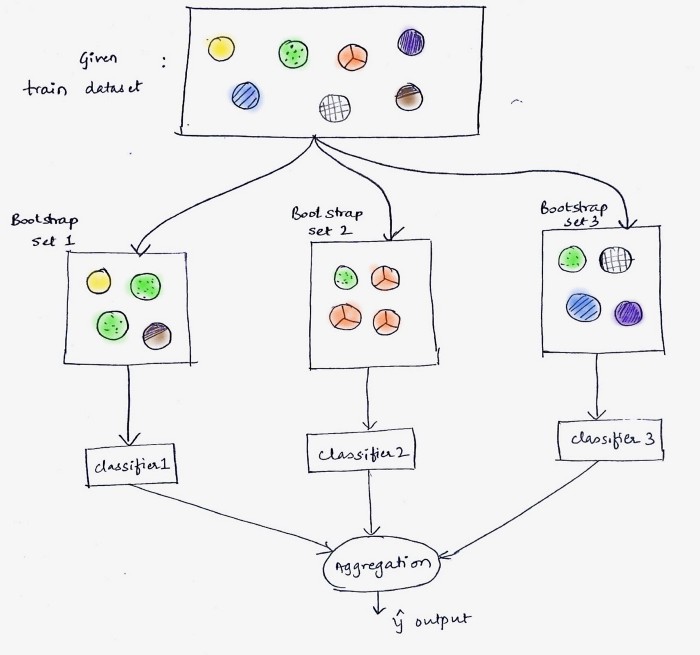 Given :
train dataset
Bootstrap
set 1
Bootstrap
set 2
Bootstrap
set 3
classifier1
classifier2
classifier 3
Aggregation
ŷ output